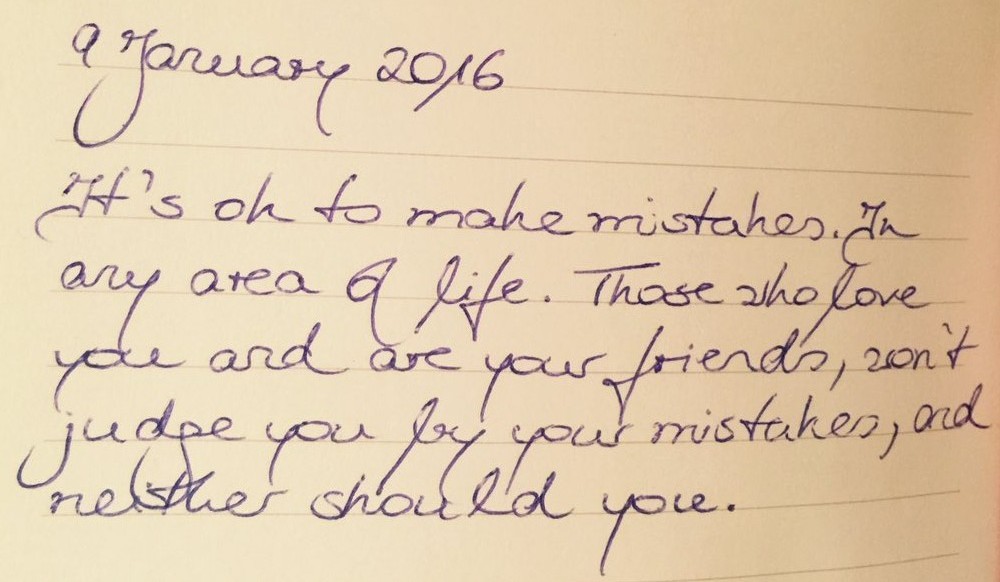 9 January 2016
It's ok to make mistakes. In
any area of life. Those who love
you and are your friends, won't
judge you by your mistakes, and
neither should you.